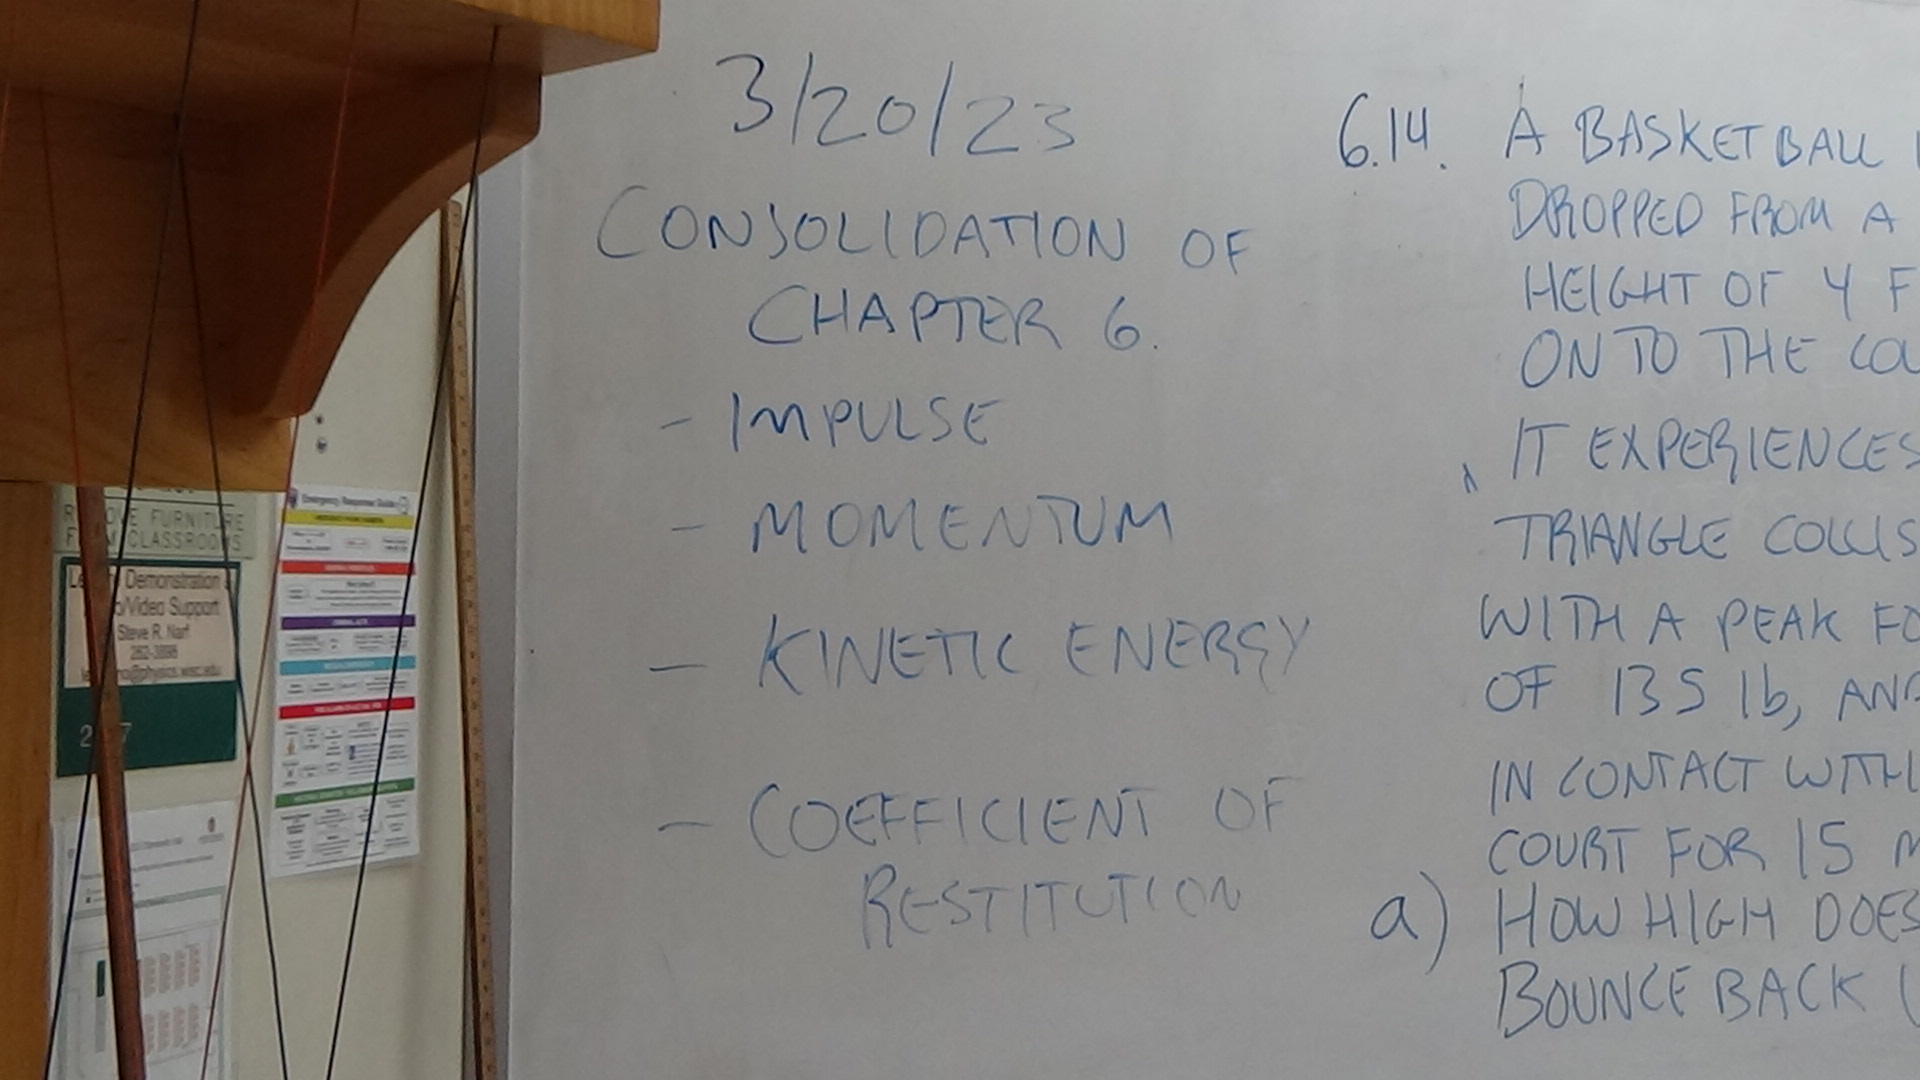 3/20/23
CONSOLIDATION OF
CHAPTER 6.
- IMPULSE
- MOMENTUM
- KINETIC ENERGY
- COEFFICIENT OF
RESTITUTION
6.14. A BASKETBALL
DROPPED FROM A
HEIGHT OF 4 F
ONTO THE COU
IT EXPERIENCES
TRIANGLE COLLIS
WITH A PEAK FO
OF 135 lb, AND
IN CONTACT WITH
COURT FOR 15 M
a) HOW HIGH DOES
BOUNCE BACK (
FURNITURE
CLASSROOMS
Demonstration
/Video Support
Steve R. Narf
262-3898
@physics.wisc.edu
Emergency Response Guide